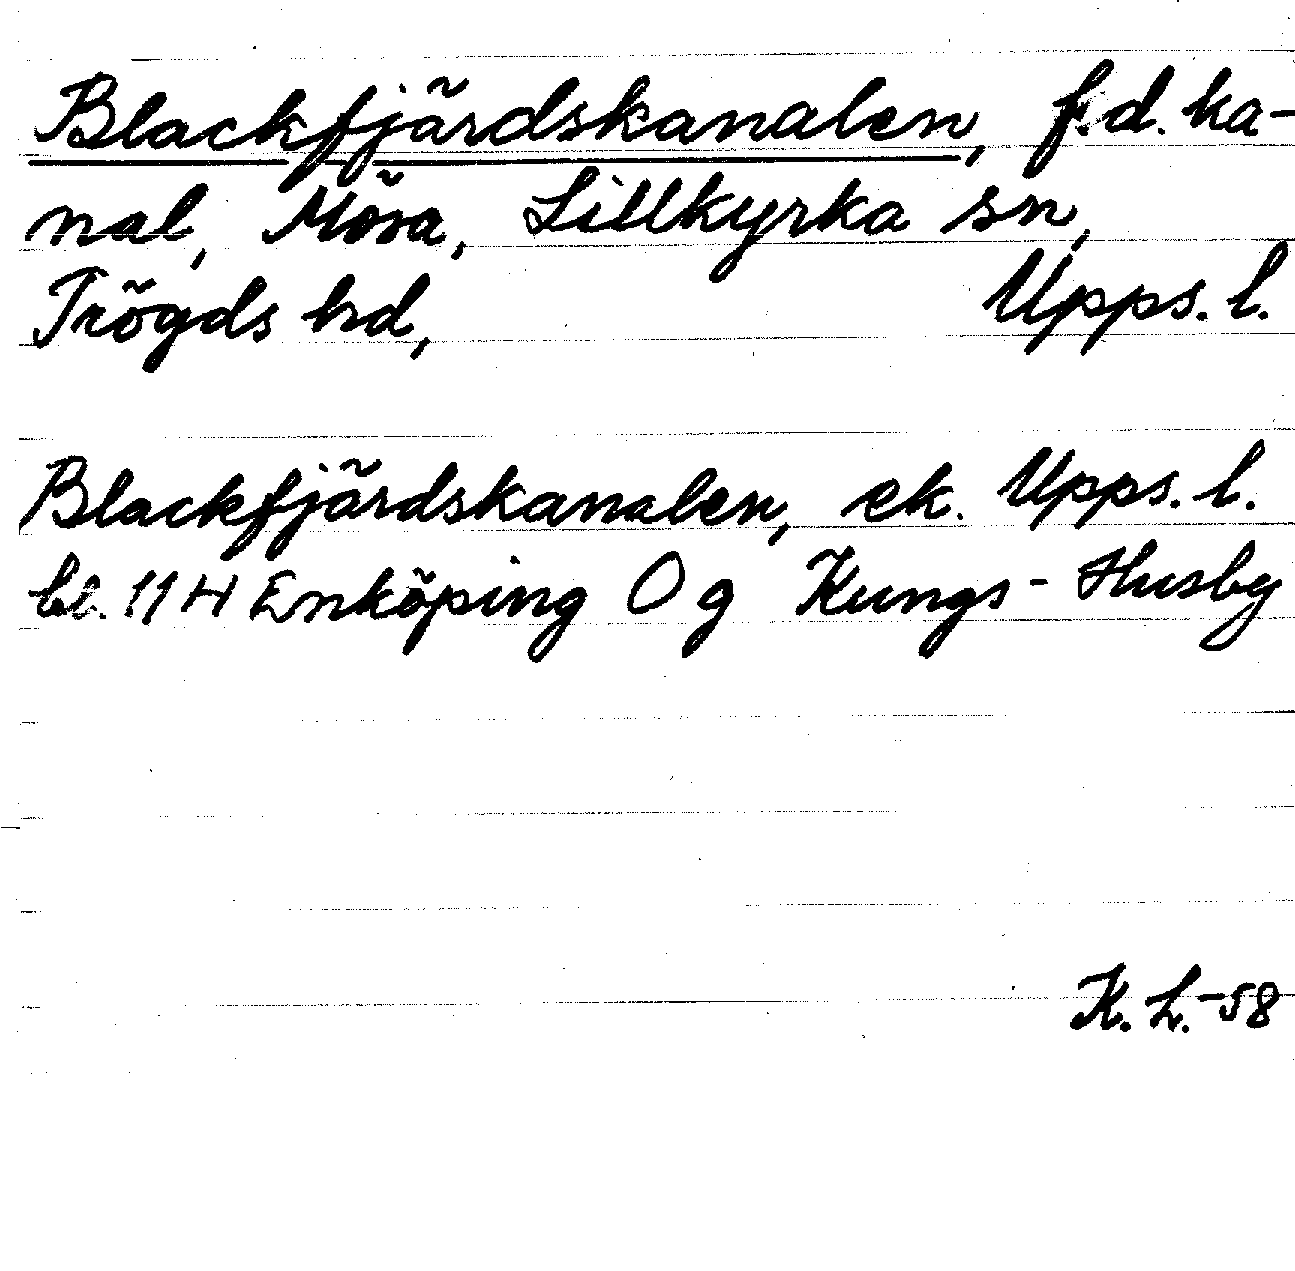 Blackfjärdskanalen, f.d. ka-
nal, Mösa, Lillkyrka sn,
Trögds hd, Upps. l.
Blackfjärdskanalen, ek. Upps. l.
bl. 11 H Enköping O g Kungs-Husby
K. L. -58